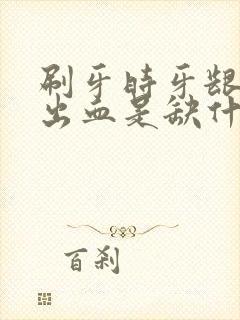 刷牙时牙龈
出血是缺什
百刹